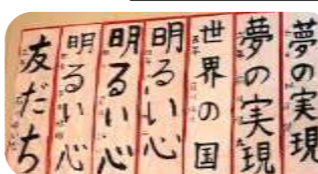 夢の実現
夢の実現
世界の国
明るい心
明るい心
明るい心
友だち